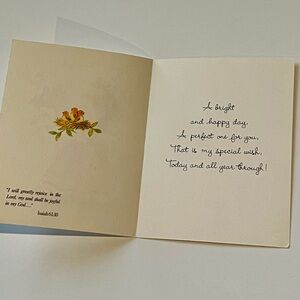 "I will greatly rejoice in the
Lord, my soul shall be joyful
in my God..."
Isaiah 61:10
A bright
and happy day,
A perfect one for you,
That is my special wish,
Today and all year through!